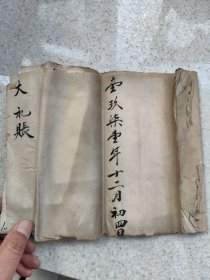 壹玖柒壹年十二月初四日
大礼賬